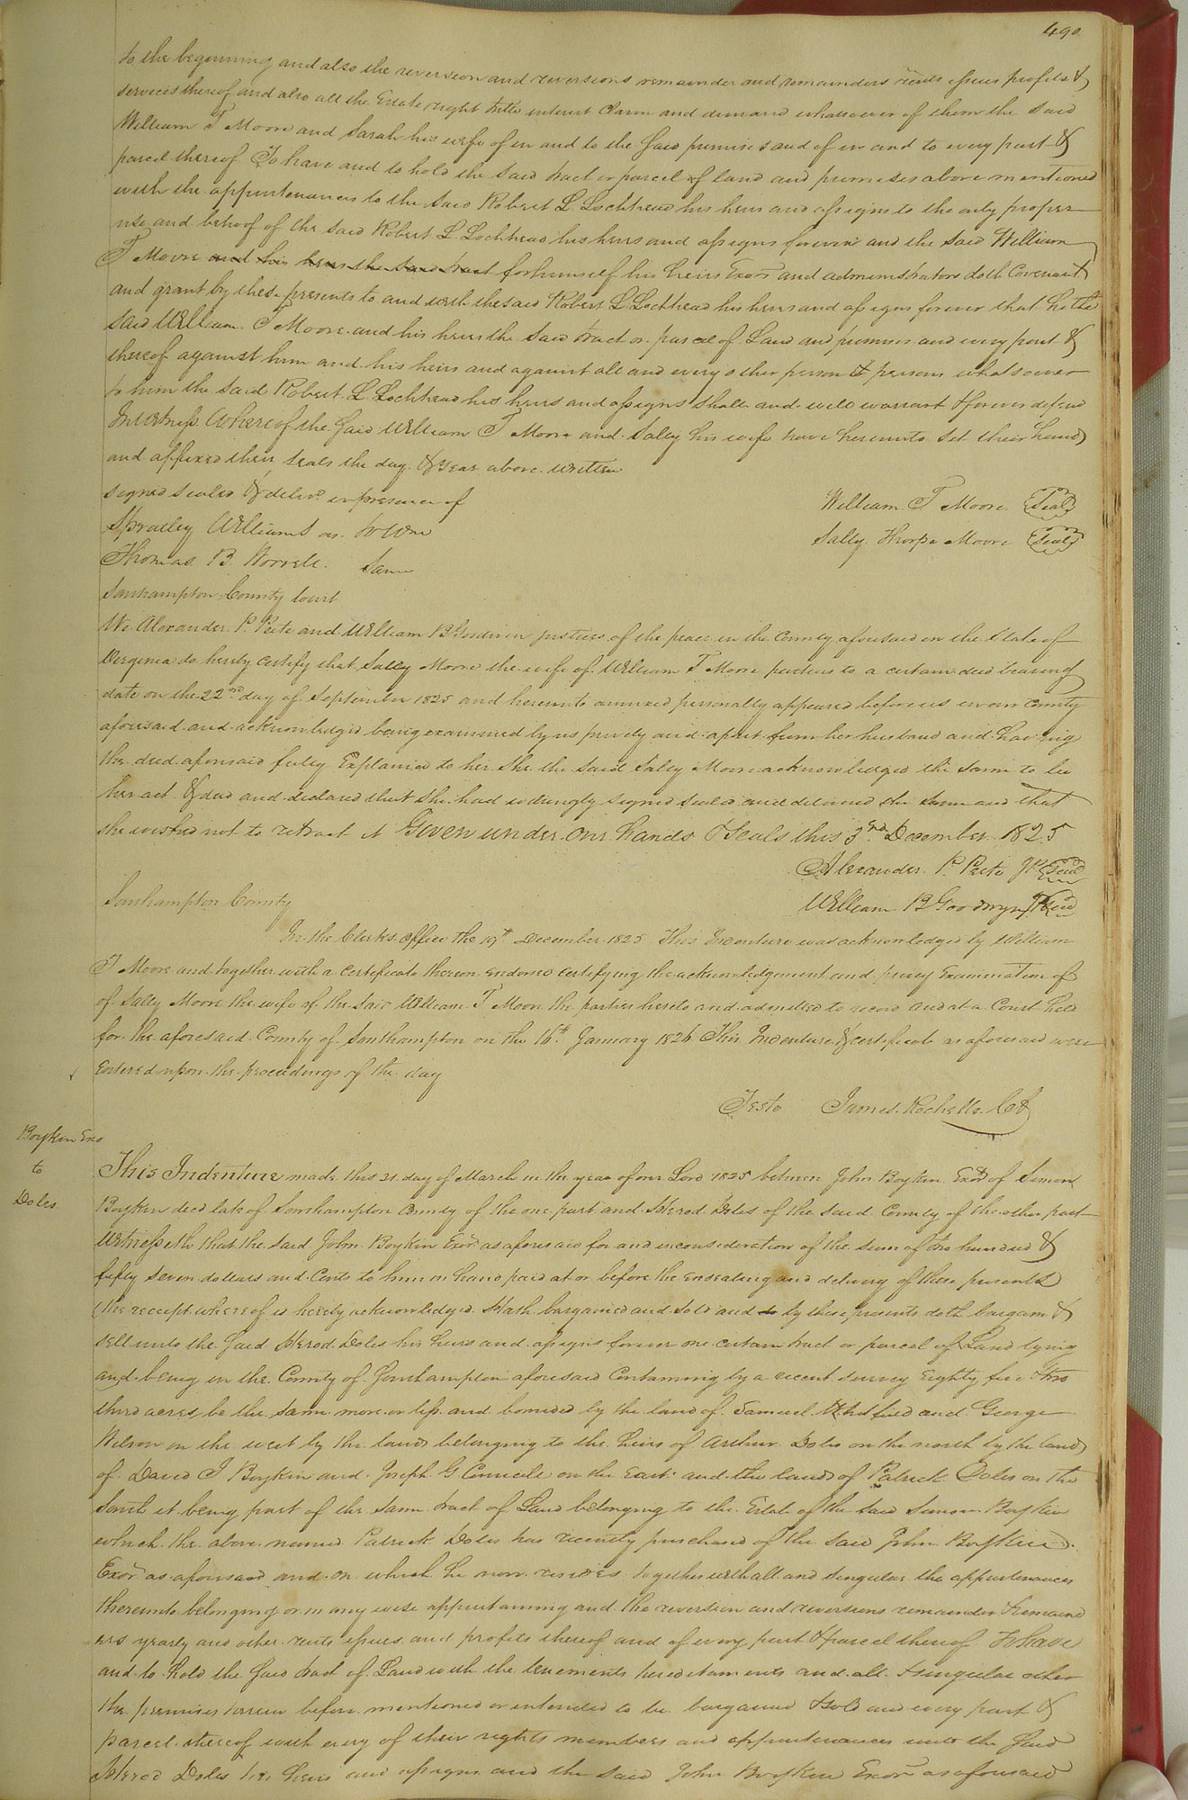 490
to the beginning and also the reversion and reversions remainder and remainders rents issues profits &
services thereof and also all the Estate right title interest claim and demand whatsoever of them the said
William T Moore and Sarah his wife of in and to the said premises and of in and to every part &
parcel thereof To have and to hold the said tract or parcel of land and premises above mentioned
with the appurtenances to the said Robert L Lochhead his heirs and assigns to the only proper
use and behoof of the said Robert L Lochhead his heirs and assigns forever and the said William
T Moore and his heirs the said tract for himself his heirs Exors and administrators doth Covenant
and grant by these presents to and with the said Robert L Lochhead his heirs and assigns forever that he the
said William T Moore and his heirs the said tract or parcel of Land and premises and every part &
thereof against him and his heirs and against all and every other person & persons whatsoever
to him the said Robert L Lochhead his heirs and assigns shall and will warrant & forever defend
In witness Whereof the said William T Moore and Sally his wife have hereunto set their hands
and affixed their seals the day & year above written
signed sealed & delivd in presence of
William T Moore Seal
Spratley Williams as to Wm
Sally Thorpe Moore Seal
Thomas B. Worrell Same
Southampton County Court
We Alexander P. Peete and William B Goodwin justices of the peace in the County aforesaid in the State of
Virginia do hereby certify that Sally Moore the wife of William T Moore parties to a certain deed bearing
date on the 22nd day of September 1825 and hereunto annexed personally appeared before us in our County
aforesaid and acknowledged being examined by us privily and apart from her husband and having
the deed aforesaid fully Explained to her She the said Sally Moore acknowledged the same to be
her act & deed and declared that she had willingly signed sealed and delivered the same and that
she wished not to retract it Given under our hands & Seals this 3rd December 1825
Alexander P. Peete JP Seal
William B Goodwyn JP Seal
Southampton County
In the Clerks office the 19th December 1825 This Indenture was acknowledged by William
T Moore and together with a certificate thereon endorsed certifying the acknowledgment and privy Examination of
of Sally Moore the wife of the said William T Moore the parties hereto and admitted to record and at a Court held
for the aforesaid County of Southampton on the 16th January 1826 This Indenture & certificate as aforesaid were
Entered upon the proceedings of the day
Teste James Rochelle Clk
Boykin Exo
to
Doles
This Indenture made this 21 day of March in the year of our Lord 1825 between John Boykin Exor of Simon
Boykin decd late of Southampton County of the one part and Herod Doles of the said County of the other part
Witnesseth that the said John Boykin Exor as aforesaid for and in consideration of the sum of two hundred &
fifty seven dollars and Cents to him in hand paid at or before the ensealing and delivery of these presents
(the receipt whereof is hereby acknowledged. Hath bargained and sold and to by these presents doth bargain &
sell unto the said Herod Doles his heirs and assigns forever one certain tract or parcel of Land lying
and being in the County of Southampton aforesaid Containing by a recent survey Eighty five & two
third acres be the same more or less and bounded by the land of Samuel and George
Wilson on the west by the lands belonging to the heirs of Arthur Doles on the north by the lands
of David J Boykin and Joseph G on the East and the lands of Patrick Doles on the
South it being part of the same tract of Land belonging to the Estate of the said Simon Boykin
which the above named Patrick Doles has recently purchased of the said John Boykin
Exor as aforesaid and on which he now resides together with all and singular the appurtenances
thereunto belonging or in any wise appertaining and the reversion and reversions remainder & remaind
ers yearly and other rents issues and profits thereof and of every part & parcel thereof To have
and to hold the said tract of Land with the tenements hereditaments and all & singular other
the premises herein before mentioned or intended to be bargained & sold and every part &
parcel thereof with every of their rights members and appurtenances unto the said
Herod Doles his heirs and assigns and the said John Boykin Exor as aforesaid